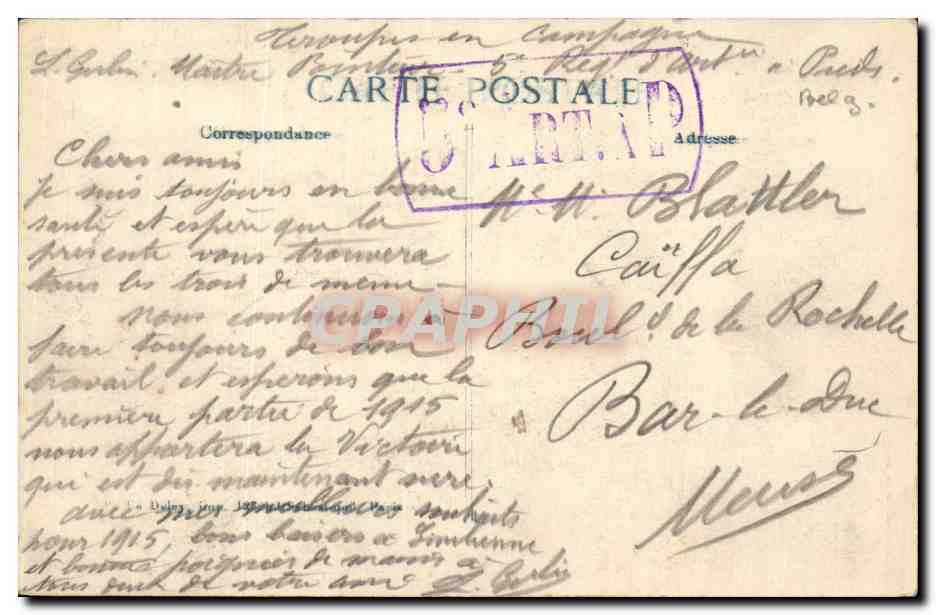 Troupes en Campagne
L. Gerbin. Maître Pointeur - 5e Régt d'Artie à Pieds.
Belg.
CARTE POSTALE
5e ART. À P
Correspondance
Adresse
Chers amis
Je suis toujours en bonne
santé et espère que la
présente vous trouvera
tous les trois de meme -
Nous continuons à
faire toujours de bon
travail. et esperons que la
première partie de 1915
nous apportera la Victoire
qui est dès maintenant sure.
avec mes meilleurs souhaits
pour 1915, bons baisers à
et bonne poignées de mains à
Vous deux de votre ami L. Gerbin
Mr M. Blattler
Caïffa
Boul.d de la Rochelle
Bar-le-Duc
Meuse
CPAPHIL